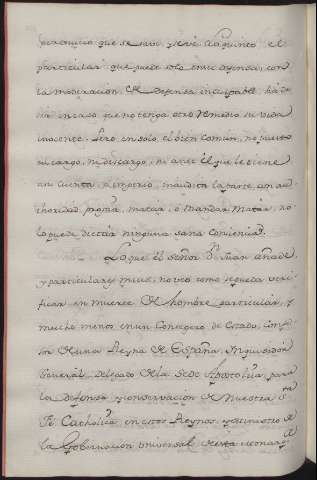 que se saco, y sevè Loquinto, el
particular que puede solo en su defensa, con
la moderacion de defensa inculpable, ha de
ser en caso que no tenga otro remedio su vida
inocente. Pero, en solo el bien comun, no puesto
à su cargo, ni descargo, ni à quel que le tiene
à su cuenta,
authoridad propria, matar, ô mandar matar, no
lo puede dictar ninguna sana conciencia.
Lo que el señor D. Juan añade,
y particulares mios, no veo como se pueda veri-
ficar en muerte de hombre particular, y
mucho menos en un Consegero de Estado, confe-
sor de una Reyna de España, Inquisidor
General, delegado de la Sede Apostolica, para
la defensa y conservacion de Nuestra Sta
Fè Catholica en estos Reynos, y de
la Governacion universal de esta Monarqa